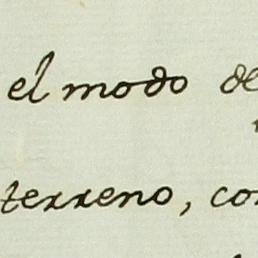 el modo de
terreno, con